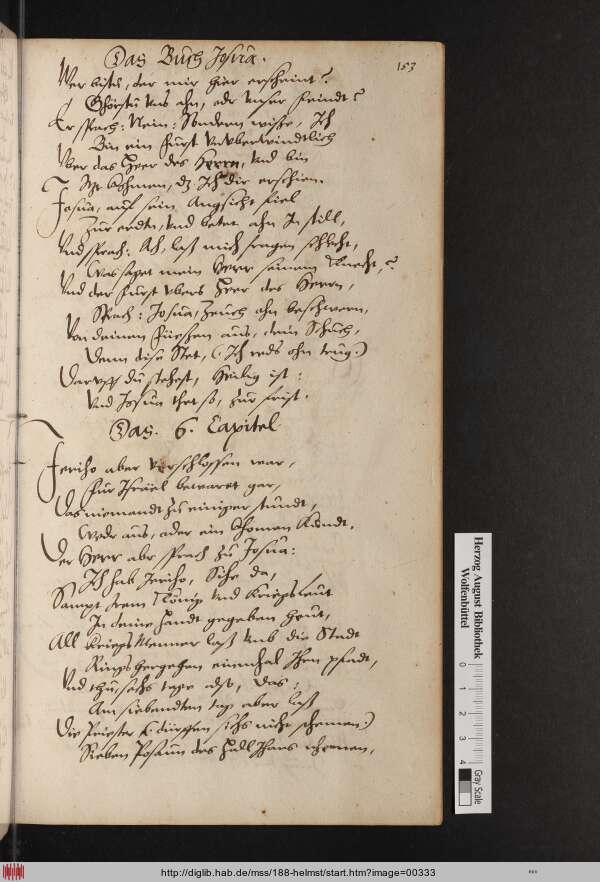 Das Buch Josua.
153
Wer bistu, der mir hier erscheint?
Ghörstu uns ahn, odr unser feindt?
Er sprach: Nein: Sondern wisse, Ich
Bin ein Fürst unuberwindtlich
Uber das Heer des Herrn, und bin
Itzt kohmen, dz Ich dir erschien.
Josua, auf sein Angsicht fiel
Zur erdn, und betet ahn In still,
Und sprach: Ah, laß mich fragen schlecht,
Was saget mein Herr seinem Knecht,?
Und der Fürst ubers Heer des Herrn,
Sprach: Josua, Zeuch ahn beschwern,
Von deinen Füeßen aus, dein Schuch,
Denn dise Stet, (Ich reds ohn trug.)
Daruff du stehest, Heilig ist:
Und Josua thet so, zur frist.
Das. 6. Capitel
Jeriho aber verschlossen war,
Für Israël bewaret gar,
Das niemandt zu einiger stundt,
Wedr aus, oder ein khomen kundt.
Der Herr abr sprach zu Josua:
Ich hab Jeriho, Sihe da,
Sampt irem König und Kriegsleut
In deine Handt gegeben heut,
All kriegs Menner laß umb die Stadt
Rings hergehen einmhal Ihen pfadt,
Und thu sechs tage also, das:
Am siebendten tag aber laß
Die Priester (: dürffen sichs nicht schemen:)
Sieben Posaun des Hall Ihars nhemen,
Herzog August Bibliothek
Wolfenbüttel
0 1 2 3 4
Gray Scale
http://diglib.hab.de/mss/188-helmst/start.htm?image=00333